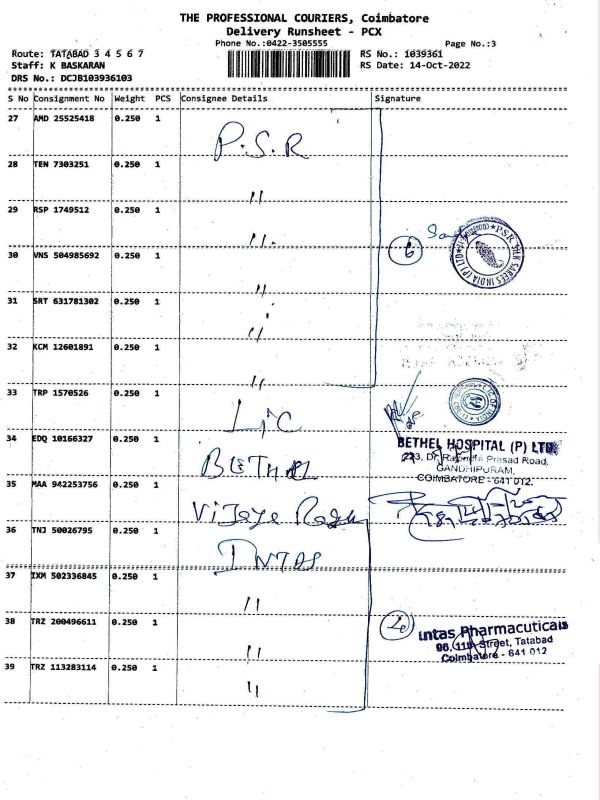 THE PROFESSIONAL COURIERS, Coimbatore
Delivery Runsheet - PCX
Phone No.:0422-3505555
Page No.:3
Route: TATABAD 3 4 5 6 7
RS No.: 1039361
Staff: K BASKARAN
RS Date: 14-Oct-2022
DRS No.: DCJB103936103
S No Consignment No Weight PCS Consignee Details Signature
27 AMD 25525418 0.250 1 P.S.R
28 TEN 7303251 0.250 1 "
29 RSP 1749512 0.250 1 "
30 VNS 504985692 0.250 1 " 6
31 SRT 631781302 0.250 1 "
32 KCM 12601891 0.250 1 "
33 TRP 1570526 0.250 1 LIC
34 EDQ 10166327 0.250 1 BETHEL
BETHEL HOSPITAL (P) LTD
223, Dr. Rajendra Prasad Road,
GANDHIPURAM,
COIMBATORE - 641 012.
35 MAA 942253756 0.250 1 Vijaya
36 TNJ 50026795 0.250 1 INTAS
37 IXM 502336845 0.250 1 "
38 TRZ 200496611 0.250 1 "
Intas Pharmaceuticals
96, 11th Street, Tatabad
Coimbatore - 641 012
39 TRZ 113283114 0.250 1 "